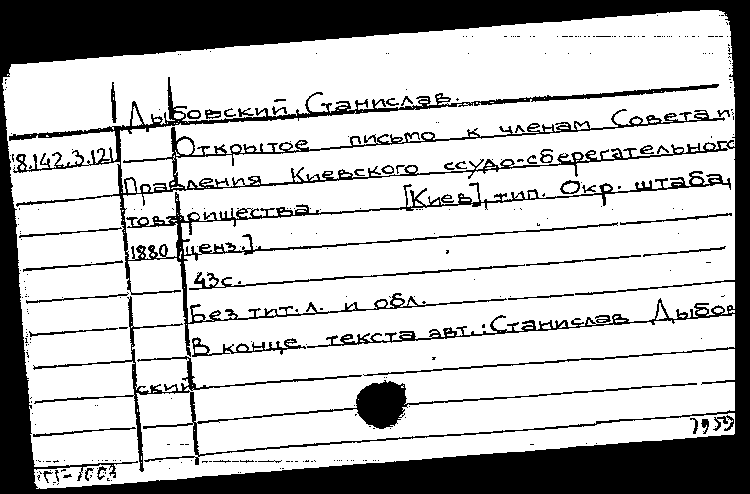 Дыбовский, Станислав.
18.142.3.121
Открытое письмо к членам Совета и
Правления Киевского ссудо-сберегательного
товарищества. [Киев], тип. Окр. штаба,
1880 [ценз.].
43с.
Без тит. л. и обл.
В конце текста авт.: Станислав Дыбов
ский.
7959